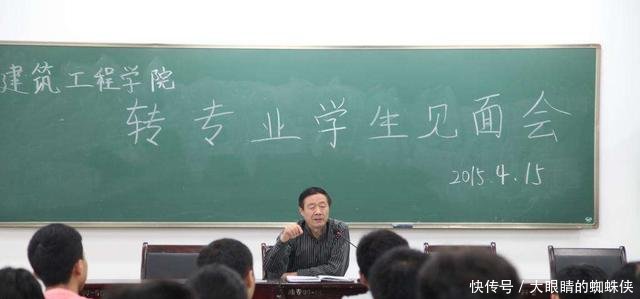 建筑工程学院
转专业学生见面会
2015.4.15
快传号／大眼睛的蜘蛛侠